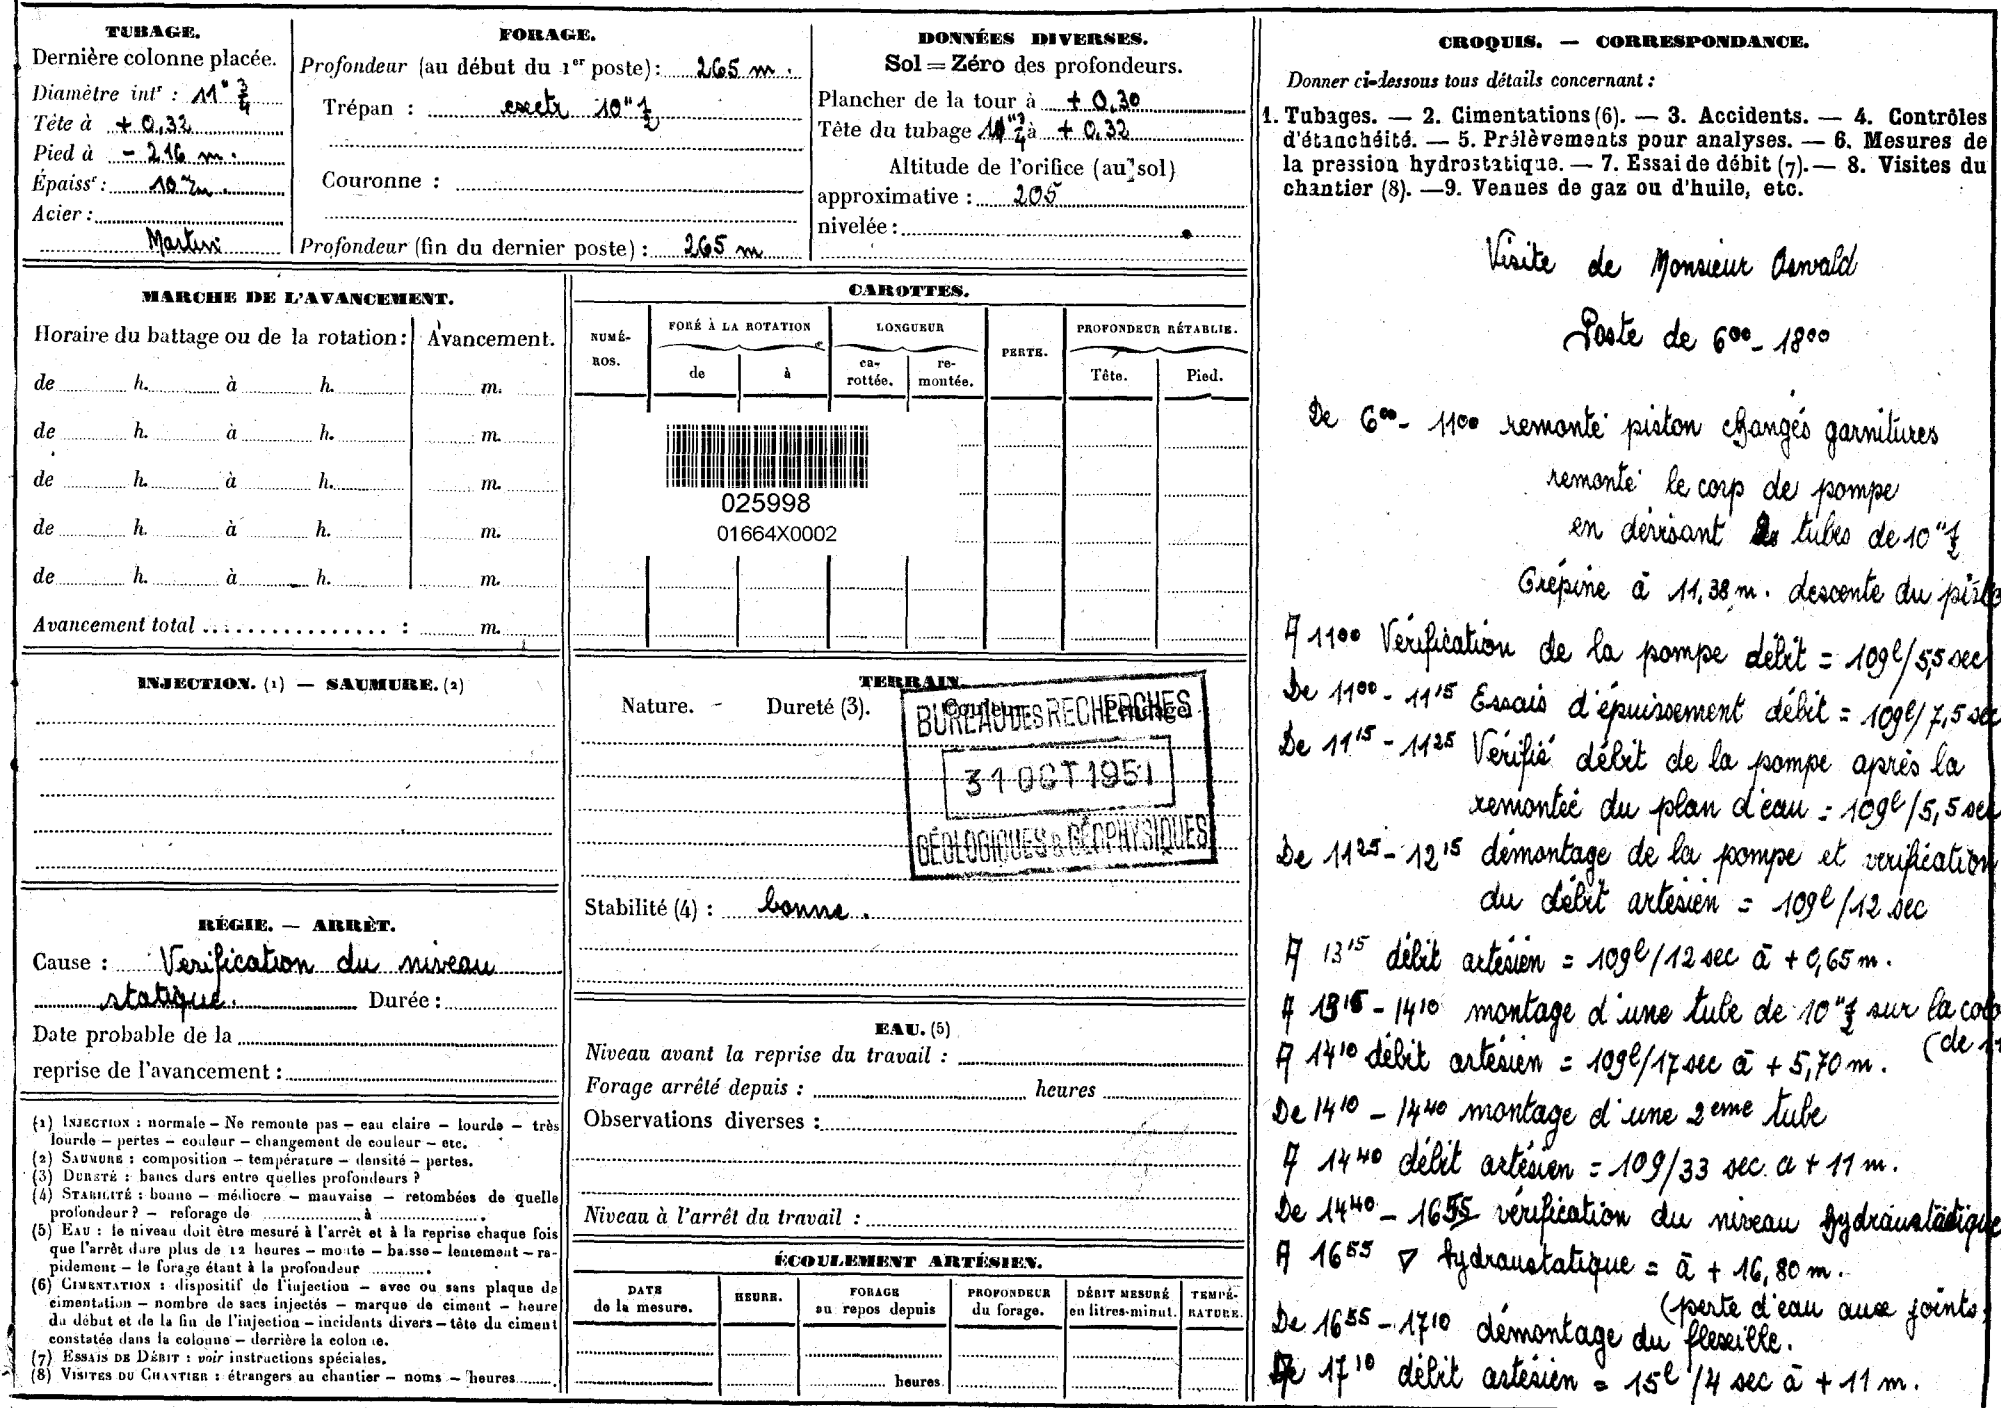 TUBAGE.
Dernière colonne placée.
Diamètre intr : 11" 3/4
Tête à + 0,32
Pied à - 216 m.
Épaissr : 10 m/m.
Acier :
Martini
FORAGE.
Profondeur (au début du 1er poste) : 265 m.
Trépan : excctr 10" 1/2
Couronne :
Profondeur (fin du dernier poste) : 265 m
DONNÉES DIVERSES.
Sol = Zéro des profondeurs.
Plancher de la tour à + 0,30
Tête du tubage à + 0,32
Altitude de l'orifice (au sol)
approximative : 205
nivelée :
MARCHE DE L'AVANCEMENT.
Horaire du battage ou de la rotation : Avancement.
de h. à h. m.
de h. à h. m.
de h. à h. m.
de h. à h. m.
de h. à h. m.
Avancement total : m.
CAROTTES.
NUMÉROS. FORÉ À LA ROTATION LONGUEUR PERTE. PROFONDEUR RÉTABLIE.
de à carottée. remontée. Tête. Pied.
025998
01664X0002
INJECTION. (1) — SAUMURE. (2)
TERRAIN.
Nature. - Dureté (3). Couleur. Pendage.
BUREAU DES RECHERCHES
31 OCT 1951
GÉOLOGIQUES & GÉOPHYSIQUES
Stabilité (4) : bonne.
RÉGIE. — ARRÊT.
Cause : Verification du niveau
statique. Durée :
Date probable de la
reprise de l'avancement :
EAU. (5)
Niveau avant la reprise du travail :
Forage arrêté depuis : heures
Observations diverses :
Niveau à l'arrêt du travail :
(1) INJECTION : normale – Ne remonte pas – eau claire – lourde – très
lourde – pertes – couleur – changement de couleur – etc.
(2) SAUMURE : composition – température – densité – pertes.
(3) DURETÉ : bancs durs entre quelles profondeurs ?
(4) STABILITÉ : bonne – médiocre – mauvaise – retombées de quelle
profondeur ? – reforage de à
(5) EAU : le niveau doit être mesuré à l'arrêt et à la reprise chaque fois
que l'arrêt dure plus de 12 heures – monte – baisse – lentement – ra-
pidement – le forage étant à la profondeur
(6) CIMENTATION : dispositif de l'injection – avec ou sans plaque de
cimentation – nombre de sacs injectés – marque de ciment – heure
du début et de la fin de l'injection – incidents divers – tête du ciment
constatée dans la colonne – derrière la colonne.
(7) ESSAIS DE DÉBIT : voir instructions spéciales.
(8) VISITES DU CHANTIER : étrangers au chantier – noms – heures
ÉCOULEMENT ARTÉSIEN.
DATE de la mesure. HEURE. FORAGE au repos depuis PROFONDEUR du forage. DÉBIT MESURÉ en litres-minut. TEMPÉRATURE.
heures
CROQUIS. — CORRESPONDANCE.
Donner ci-dessous tous détails concernant :
1. Tubages. — 2. Cimentations (6). — 3. Accidents. — 4. Contrôles
d'étanchéité. — 5. Prélèvements pour analyses. — 6. Mesures de
la pression hydrostatique. — 7. Essai de débit (7). — 8. Visites du
chantier (8). — 9. Venues de gaz ou d'huile, etc.
Visite de Monsieur Oswald
Poste de 6⁰⁰ - 18⁰⁰
De 6⁰⁰ - 11⁰⁰ remonté piston changés garnitures
remonté le corp de pompe
en dévisant tubes de 10" 1/2
Crépine à 11,38 m. descente du pisto
A 11⁰⁰ Vérification de la pompe débit = 109 l/5,5 sec
De 11⁰⁰ - 11¹⁵ Essais d'épuissement débit = 109 l/7,5 sec
De 11¹⁵ - 11²⁵ Vérifié débit de la pompe après la
remontée du plan d'eau = 109 l/5,5 sec
De 11²⁵ - 12¹⁵ démontage de la pompe et verification
du débit artésien = 109 l/12 sec
A 13¹⁵ débit artésien = 109 l/12 sec à + 0,65 m.
A 13¹⁵ - 14¹⁰ montage d'une tube de 10" 1/2 sur la colo
(de 11
A 14¹⁰ débit artésien = 109 l/17 sec à + 5,70 m.
De 14¹⁰ - 14⁴⁰ montage d'une 2eme tube
A 14⁴⁰ débit artésien = 109/33 sec. a + 11 m.
De 14⁴⁰ - 16⁵⁵ vérification du niveau hydraustatique
A 16⁵⁵ ▽ hydraustatique = à + 16,80 m.
(perte d'eau aux joints)
De 16⁵⁵ - 17¹⁰ démontage du flexeille.
A 17¹⁰ débit artésien = 15 l/4 sec à + 11 m.